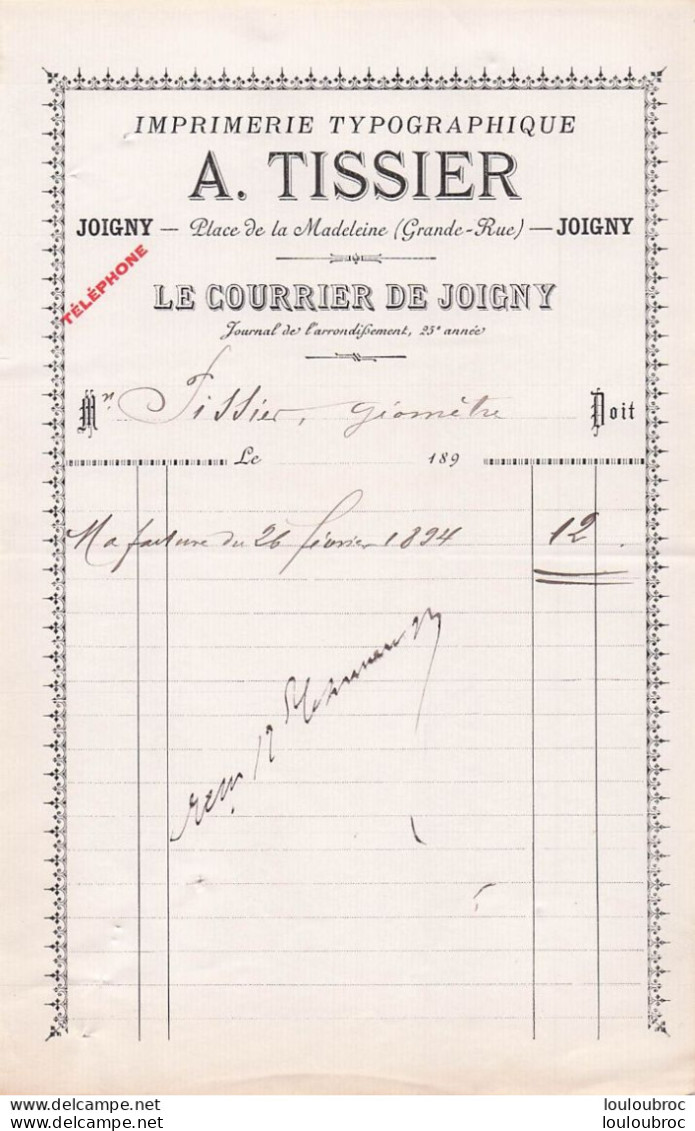 IMPRIMERIE TYPOGRAPHIQUE
A. TISSIER
JOIGNY — Place de la Madeleine (Grande-Rue) — JOIGNY
TÉLÉPHONE
LE COURRIER DE JOIGNY
Journal de l'arrondissement, 25e année
Mr Tissier, géomètre Doit
Le 189
Ma facture du 26 février 1894 12
DELCAMPE.NET
DELCAMPE.NET
louloubroc
louloubroc